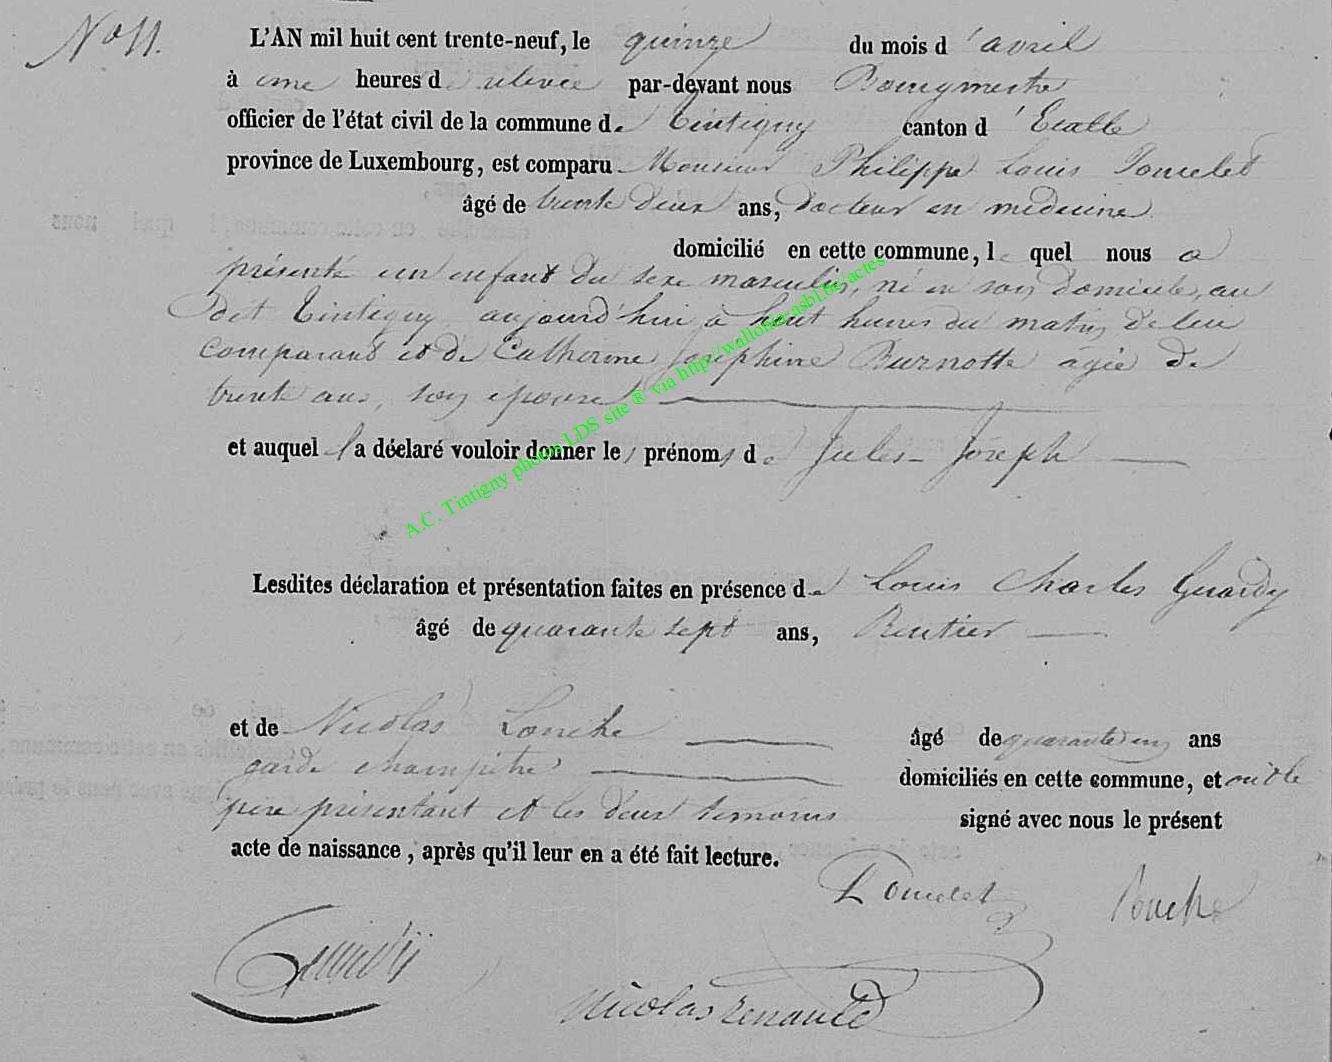 N° 11.
L'AN mil huit cent trente-neuf, le quinze du mois d'avril
à une heures de relevée par-devant nous Bourgmestre
officier de l'état civil de la commune de Tintigny canton d'Etalle
province de Luxembourg, est comparu Monsieur Philippe Louis Poncelet
âgé de trente deux ans, docteur en médecine
domicilié en cette commune, le quel nous a
présenté un enfant du sexe masculin, né en son domicile, au
dit Tintigny aujourd'hui à huit heures du matin de lui
comparant et de Catherine Joséphine Burnotte agée de
trente ans, son épouse
et auquel il a déclaré vouloir donner les prénoms de Jules-Joseph
Lesdites déclaration et présentation faites en présence de Louis Charles Guaidy
âgé de quarante sept ans, Rentier
et de Nicolas Louche âgé de quarante un ans
garde champêtre domiciliés en cette commune, et ont le
père présentant et les deux témoins signé avec nous le présent
acte de naissance, après qu'il leur en a été fait lecture.
Poncelet Louche
Nicolas Renauld
A.C. Tintigny photos LDS site ® via http://wallonia-asbl.be/actes